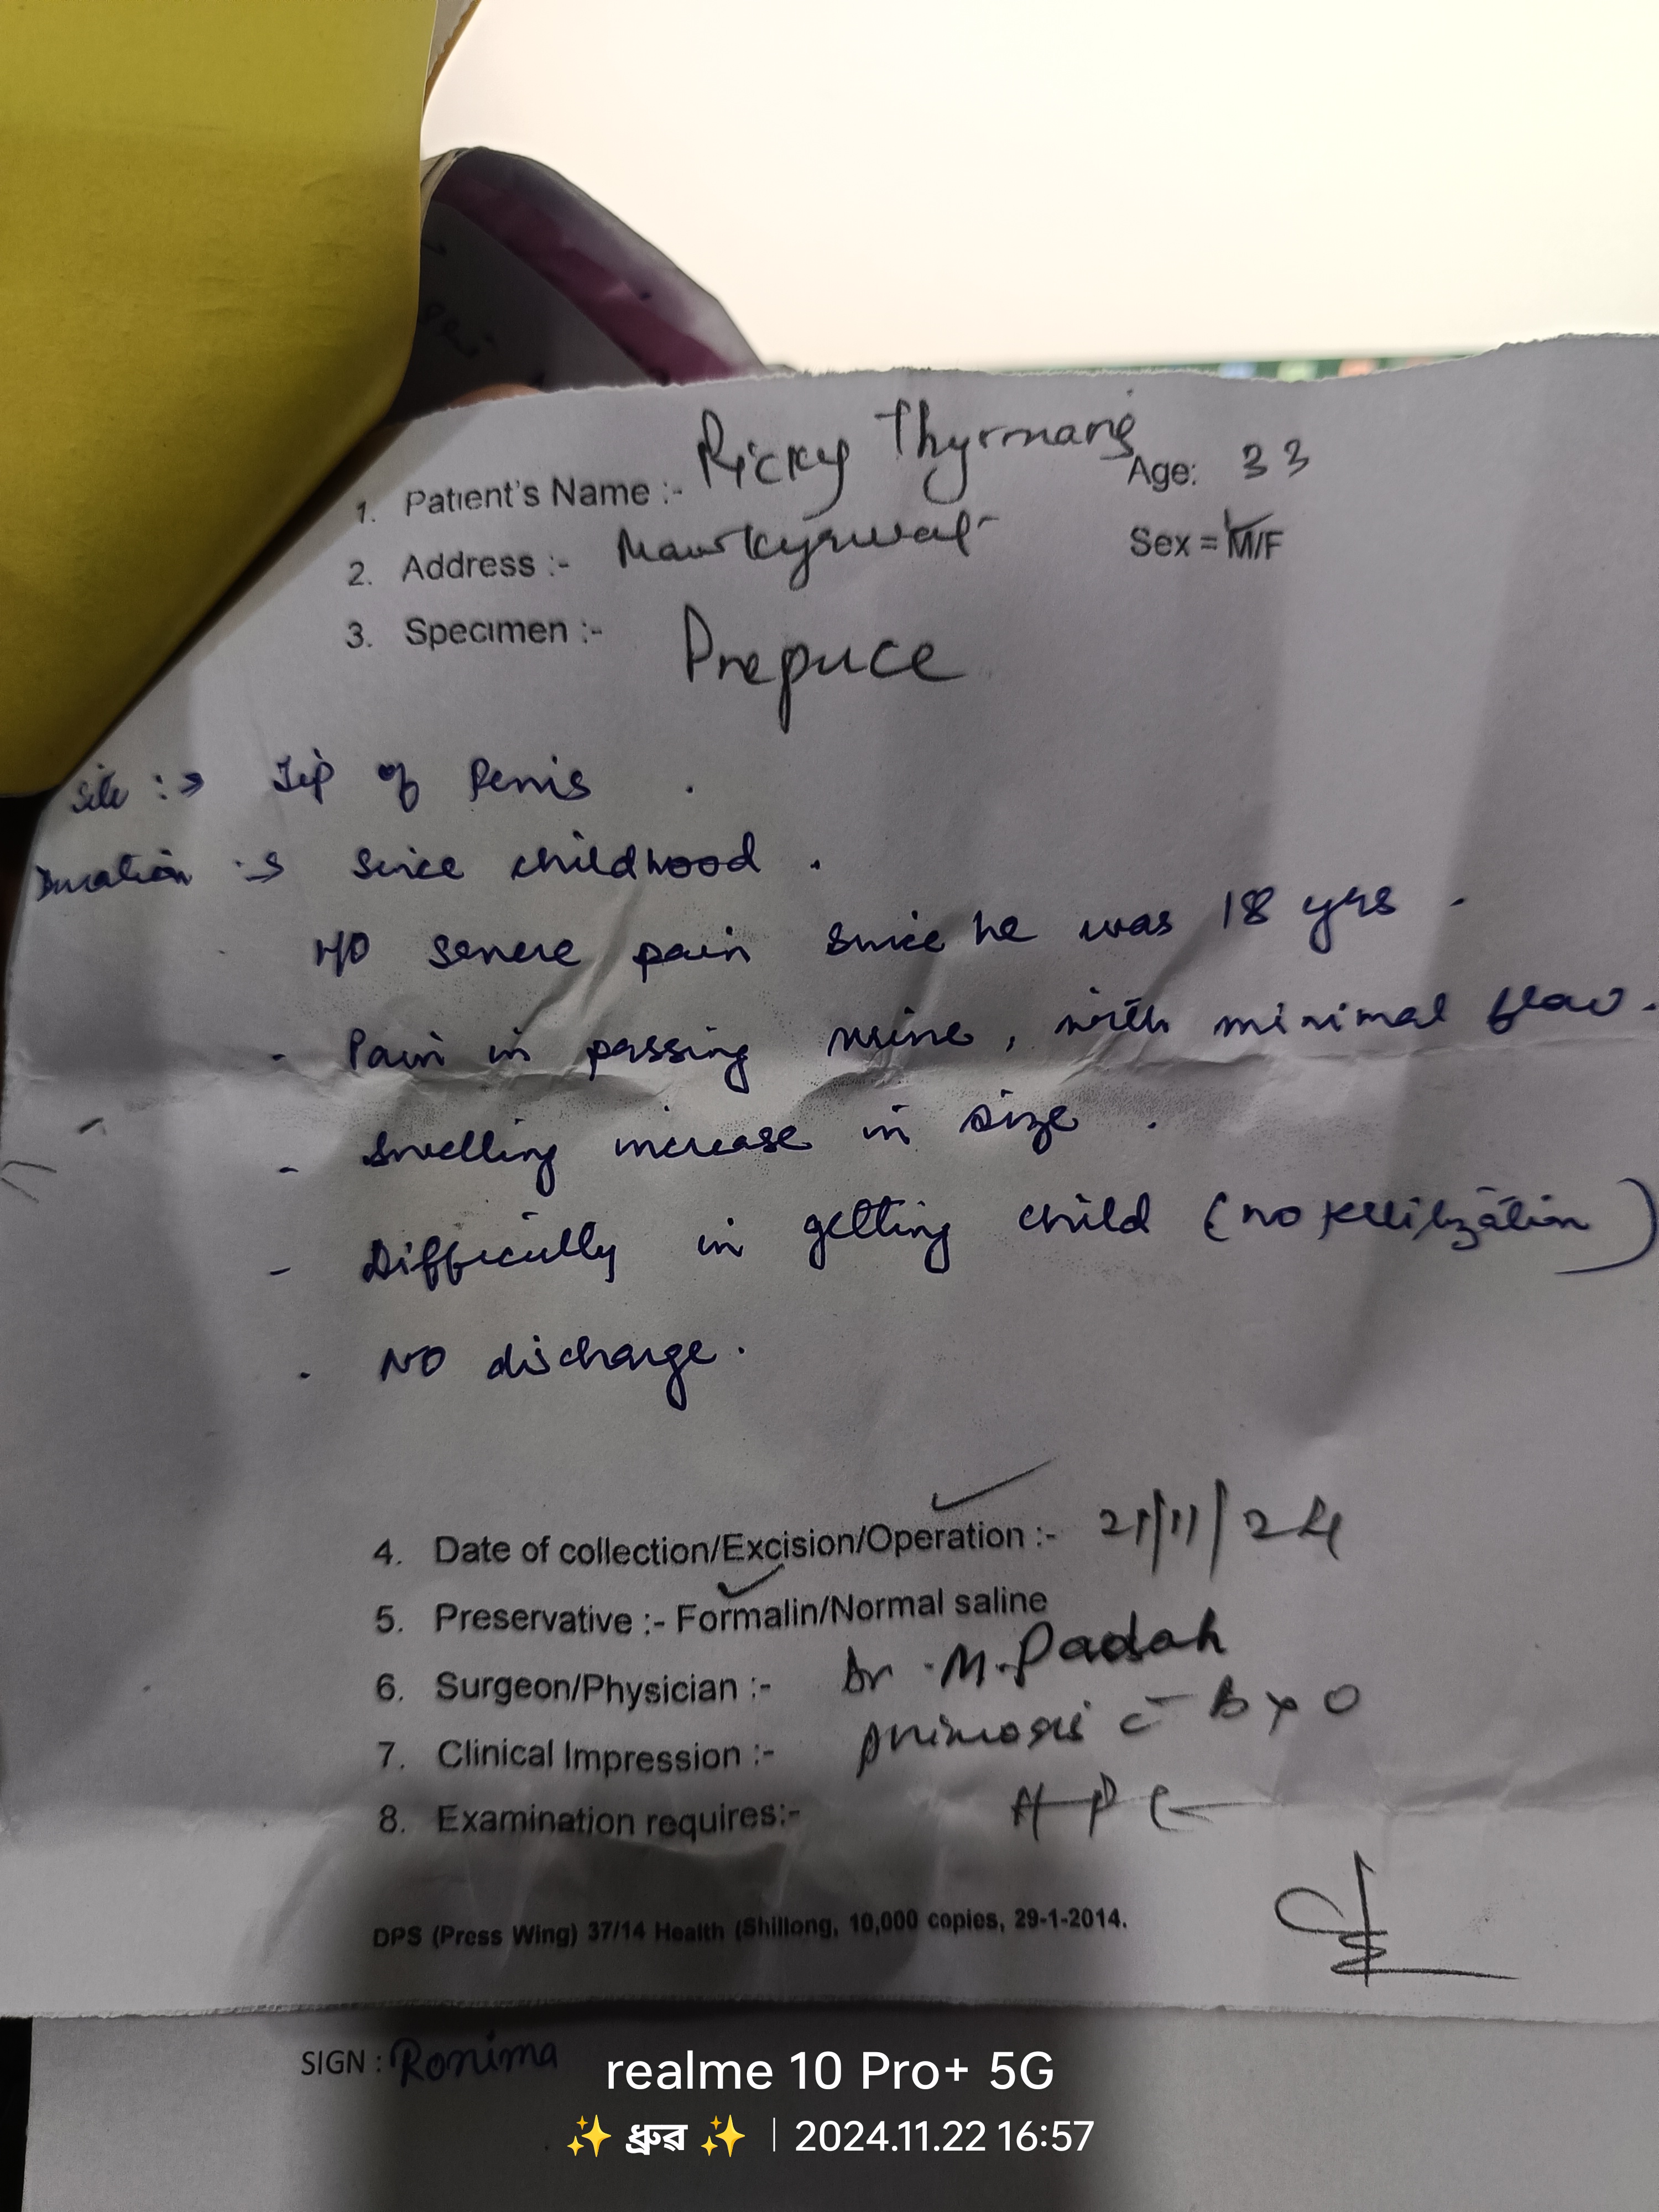 1. Patient's Name :- Ricky Thyrmang Age: 33
2. Address :- Mawkyrwat Sex = M/F
3. Specimen :- Prepuce
Site :→ Tip of Penis .
Duration :→ Since childhood .
H/O severe pain since he was 18 yrs .
- Pain in passing urine, with minimal flow.
- Swelling increase in size .
- Difficulty in getting child (no fertilization)
. NO discharge.
4. Date of collection/Excision/Operation :- 21/11/24
5. Preservative :- Formalin/Normal saline
6. Surgeon/Physician :- Dr. M. Padah
7. Clinical Impression :- Phimosis c̄ BXO
8. Examination requires:- HPE
DPS (Press Wing) 37/14 Health (Shillong, 10,000 copies, 29-1-2014.
SIGN : Ronima
realme 10 Pro+ 5G
✨ ধ্ৰুৱ ✨ | 2024.11.22 16:57